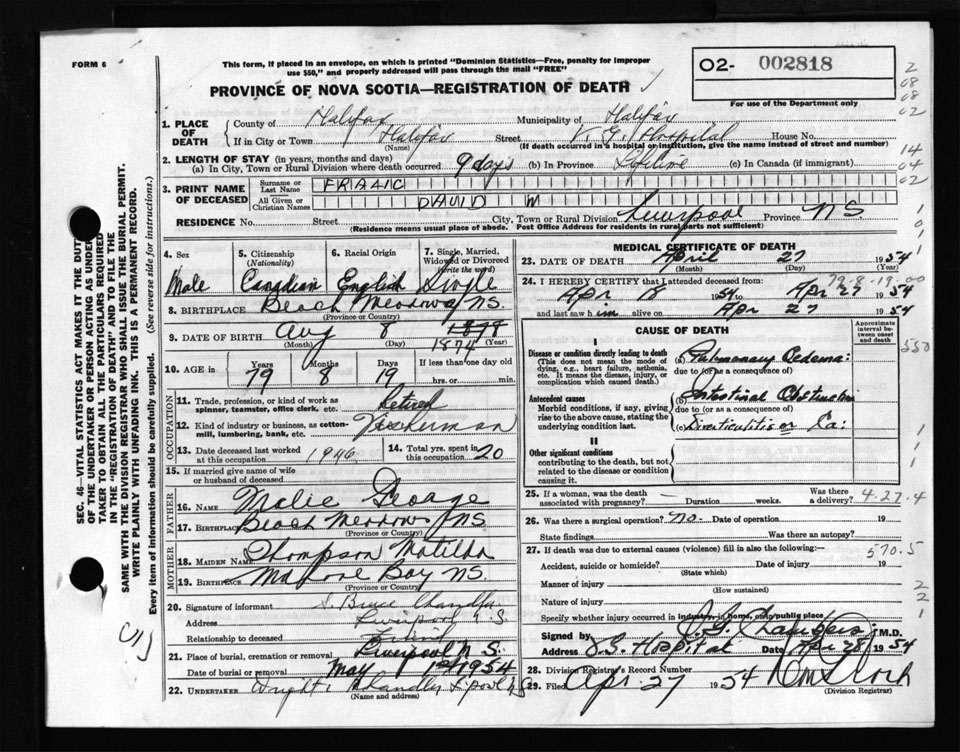 FORM 6
This form, if placed in an envelope, on which is printed "Dominion Statistics—Free, penalty for improper
use $50," and properly addressed will pass through the mail "FREE"
O2- 002818
For use of the Department only
PROVINCE OF NOVA SCOTIA—REGISTRATION OF DEATH
1. PLACE OF DEATH
County of Halifax Municipality of Halifax
If in City or Town Halifax Street V. G. Hospital House No.
(Name) (If death occurred in a hospital or institution, give the name instead of street and number)
2. LENGTH OF STAY (in years, months and days)
(a) In City, Town or Rural Division where death occurred 9 days (b) In Province Lifetime (c) In Canada (if immigrant)
3. PRINT NAME OF DECEASED
Surname or Last Name
All Given or Christian Names DAVID W
RESIDENCE No. Street City, Town or Rural Division Liverpool Province N S
(Residence means usual place of abode. Post Office Address for residents in rural parts not sufficient)
4. Sex Male
5. Citizenship (Nationality) Canadian
6. Racial Origin English
7. Single, Married, Widowed or Divorced (write the word) Single
8. BIRTHPLACE Beach Meadows NS.
(Province or Country)
9. DATE OF BIRTH Aug 8 1878 1874
(Month) (Day) (Year)
10. AGE in Years Months Days If less than one day
79 8 19 hrs. or min.
OCCUPATION
11. Trade, profession, or kind of work as spinner, teamster, office clerk, etc. Retired
12. Kind of industry or business, as cotton-mill, lumbering, bank, etc. Fisherman
13. Date deceased last worked at this occupation 1946 14. Total yrs. spent in this occupation 20
15. If married give name of wife or husband of deceased
FATHER
16. NAME George
17. BIRTHPLACE Beach Meadows NS
(Province or Country)
MOTHER
18. MAIDEN NAME Thompson Matilda
19. BIRTHPLACE Mahone Bay NS.
(Province or Country)
20. Signature of informant Bruce Chandler
Address Liverpool N.S.
Relationship to deceased Friend
21. Place of burial, cremation or removal Liverpool N S.
Date of burial or removal May 1st 1954
22. UNDERTAKER Wright & Chandler L'pool NS
MEDICAL CERTIFICATE OF DEATH
23. DATE OF DEATH April 27 1954
(Month) (Day) (Year)
24. I HEREBY CERTIFY that I attended deceased from:
Apr 18 1954 to Apr 27 1954
and last saw him alive on Apr 27 1954
CAUSE OF DEATH
Approximate interval between onset and death
I
Disease or condition directly leading to death (a) Pulmonary Oedema:
(This does not mean the mode of dying, e.g., heart failure, asthenia, etc. It means the disease, injury, or complication which caused death.)
due to (or as a consequence of)
Antecedent causes
(b) Intestinal Obstruction
Morbid conditions, if any, giving rise to the above cause, stating the underlying condition last.
due to (or as a consequence of)
(c) Diverticulitis or Ca:
II
Other significant conditions
contributing to the death, but not related to the disease or condition causing it.
25. If a woman, was the death associated with pregnancy? Duration weeks. Was there a delivery?
4-27-4
26. Was there a surgical operation? no. Date of operation 19
State findings Was there an autopsy?
27. If death was due to external causes (violence) fill in also the following:—
570.5
Accident, suicide or homicide? Date of injury 19
(State which)
Manner of injury
(How sustained)
Nature of injury
Specify whether injury occurred in industry, in home, or in public place
Signed by M.D.
Address V.G. Hospital Date Apr 28 1954
28. Division Registrar's Record Number
29. Filed Apr. 27 1954
(Division Registrar)
SEC. 46—VITAL STATISTICS ACT MAKES IT THE DUTY
OF THE UNDERTAKER OR PERSON ACTING AS UNDER-
TAKER TO OBTAIN ALL THE PARTICULARS REQUIRED
IN THE "REGISTRATION OF DEATH" AND TO FILE THE
SAME WITH THE DIVISION REGISTRAR WHO SHALL ISSUE THE BURIAL PERMIT.
WRITE PLAINLY WITH UNFADING INK. THIS IS A PERMANENT RECORD.
Every item of information should be carefully supplied. (See reverse side for instructions.)